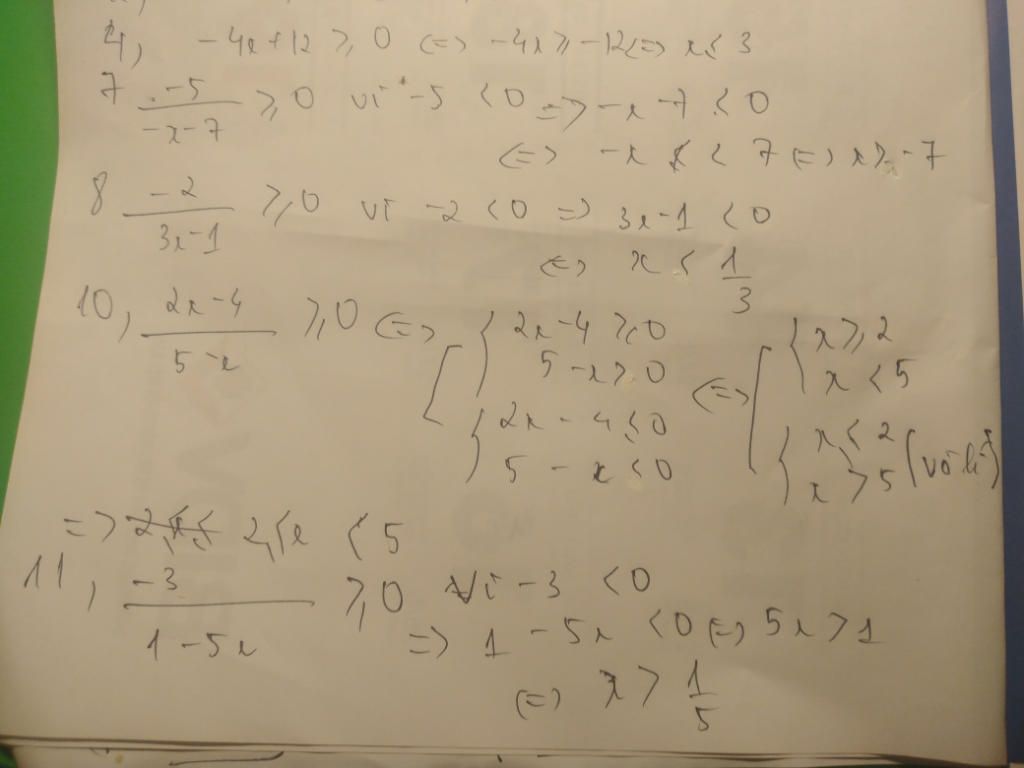 4, -4x+12 ⩾ 0 <=> -4x ⩾ -12 <=> x ⩽ 3
7 -5/(-x-7) ⩾ 0 vì -5 < 0 => -x -7 < 0
<=> -x < 7 <=> x > -7
8 -2/(3x-1) ⩾ 0 vì -2 < 0 => 3x-1 < 0
<=> x < 1/3
10, (2x-4)/(5-x) ⩾ 0 <=> [ { 2x-4 ⩾ 0 <=> [ { x ⩾ 2
5 -x > 0 x < 5
{ 2x - 4 ⩽ 0 { x < 2 (vô lí)
5 - x < 0 x > 5
=> 2 ⩽ x < 5
11, -3/(1-5x) ⩾ 0 Vì -3 < 0
=> 1 -5x < 0 <=> 5x > 1
<=> x > 1/5